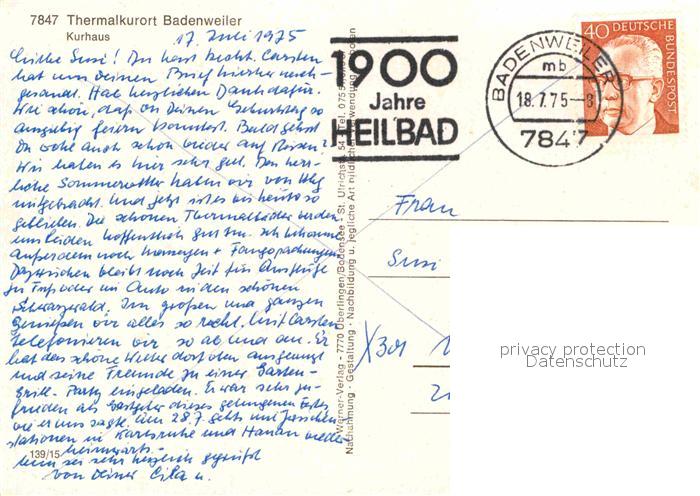 7847 Thermalkurort Badenweiler
Kurhaus
17. Juli 1975
Liebe Susi! Du hast Recht. Carsten
hat uns Deinen Brief hierher nach-
gesandt. Hab herzlichen Dank dafür.
Wie schön, daß Du Deinen Geburtstag so
ausgiebig feiern konntest. Bald gehst
Du wohl auch schon wieder auf Reisen?
Wir haben es hier sehr gut. Das herr-
liche Sommerwetter haben wir von
mitgebracht. Und jetzt ist es bis heute so
geblieben. Die schönen Thermalbäder werden
uns beiden hoffentlich gut tun. Ich bekomme
außerdem noch Massagen + Fangopackungen.
Dazwischen bleibt noch Zeit für Ausflüge
zu Fuß oder im Auto in den schönen
Schwarzwald. Im großen und ganzen
genießen wir alles so recht. Mit Carsten
telefonieren wir so ab und an. Er
hat das schöne Wetter dort oben ausgenutzt
und seine Freunde zu einer Garten-
Grill-Party eingeladen. Er war sehr zu-
frieden als Gastgeber dieses gelungenen Festes,
wie er uns sagte. Am 28.7. gehts mit Zwischen-
stationen in Karlsruhe und Hanau wieder
heimwärts.
sei sehr herzlich gegrüßt
von Deiner Cila u.
139/15
Werner-Verlag - 7770 Überlingen/Bodensee - St. Ulrichstr. 54 - Tel. 0755
Nachahmung - Gestaltung - Nachbildung u. jegliche Art
1900
Jahre
HEILBAD
BADENWEILER
mb
18.7.75-8
7847
40 DEUTSCHE
BUNDESPOST
Frau
Susi
X301
privacy protection
Datenschutz